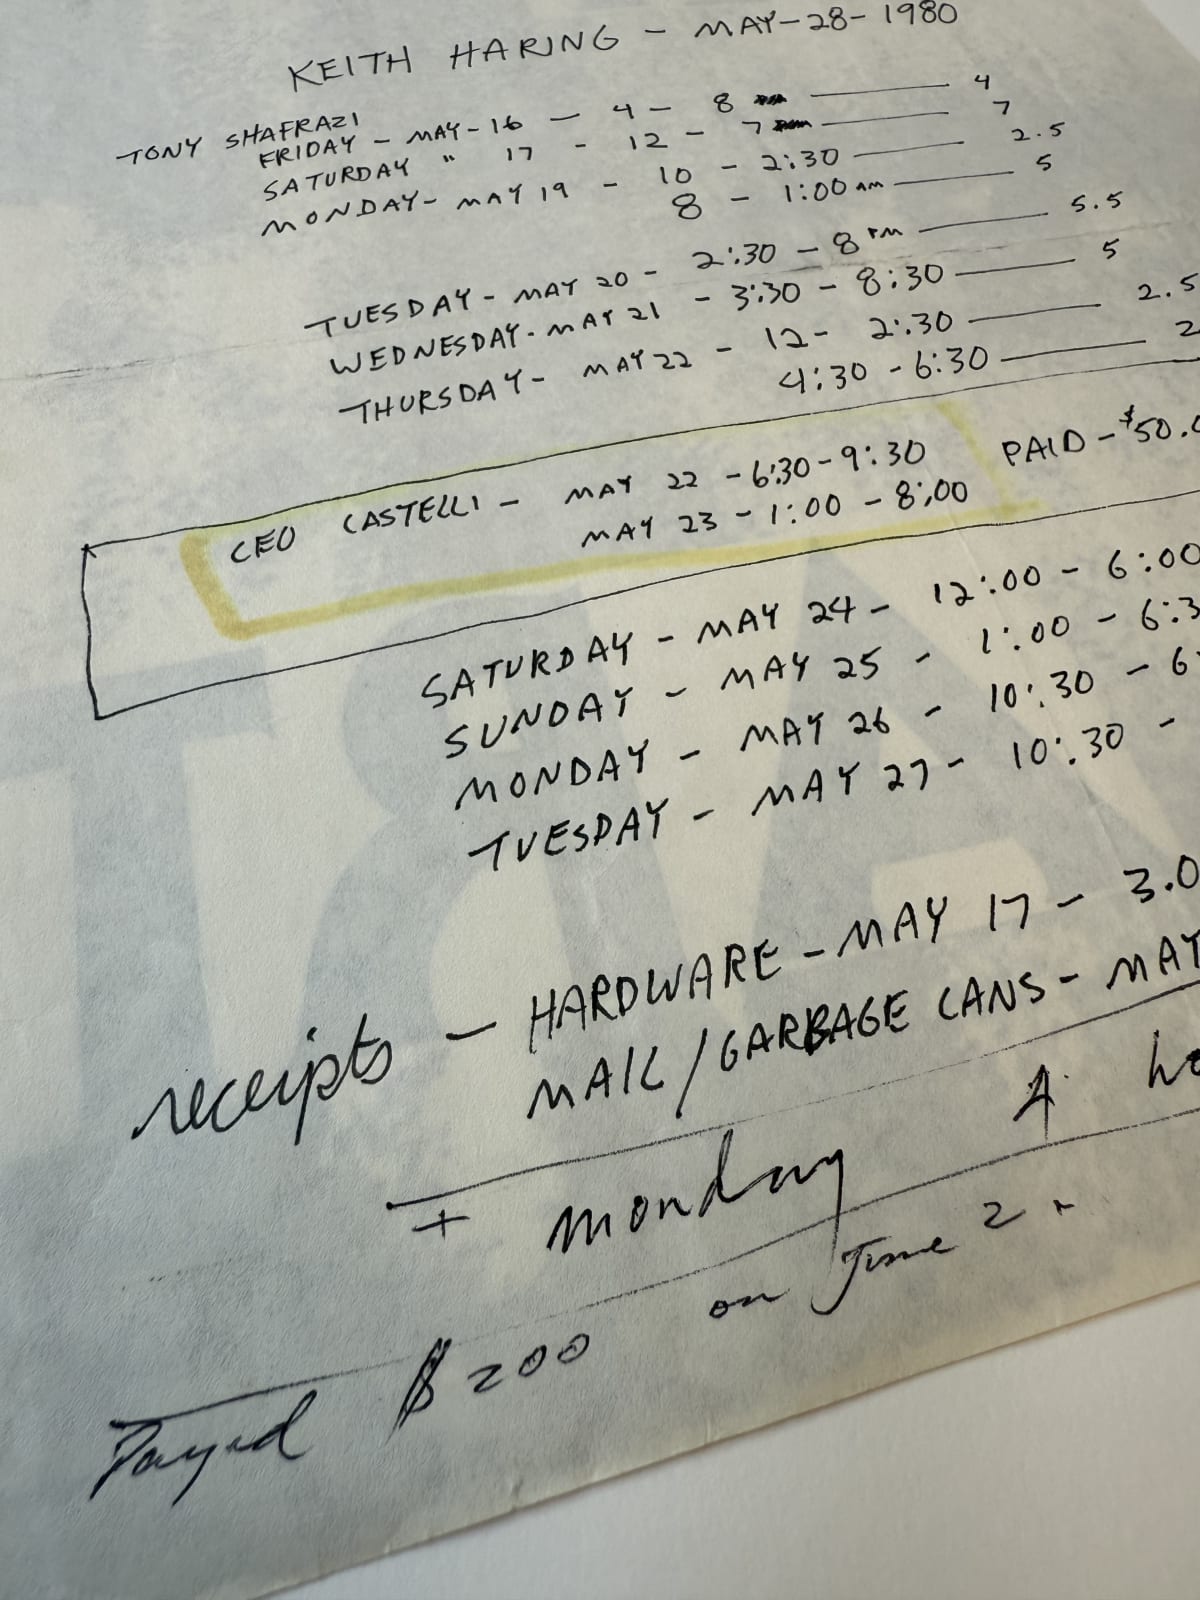 KEITH HARING - MAY-28-1980
TONY SHAFRAZI
FRIDAY - MAY-16 - 4 - 8 4
SATURDAY " 17 - 12 - 7 7
MONDAY- MAY 19 - 10 - 2:30 2.5
8 - 1:00 AM 5
TUESDAY - MAY 20 - 2:30 - 8 PM 5.5
WEDNESDAY - MAY 21 - 3:30 - 8:30 5
THURSDAY - MAY 22 - 12 - 2:30 2.5
4:30 - 6:30 2
CEO CASTELLI - MAY 22 - 6:30 - 9:30 PAID - $50.0
MAY 23 - 1:00 - 8:00
SATURDAY - MAY 24 - 12:00 - 6:00
SUNDAY - MAY 25 - 1:00 - 6:3
MONDAY - MAY 26 - 10:30 - 6
TUESDAY - MAY 27 - 10:30 -
receipts - HARDWARE - MAY 17 - 3.0
MAIL/GARBAGE CANS - MAY
+ monday 4
Payed $200 on June 2